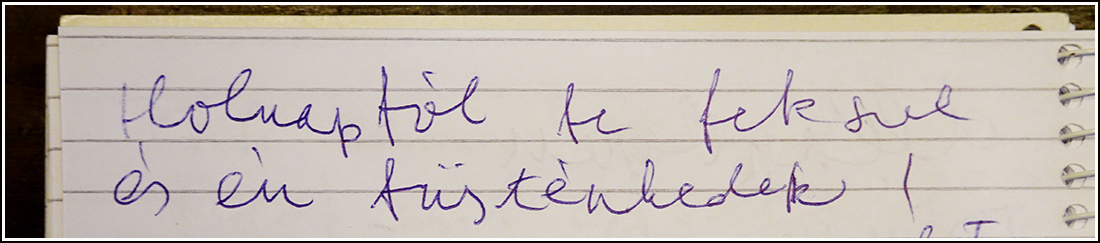 Holnaptól te fekszel
és én tüsténkedek !